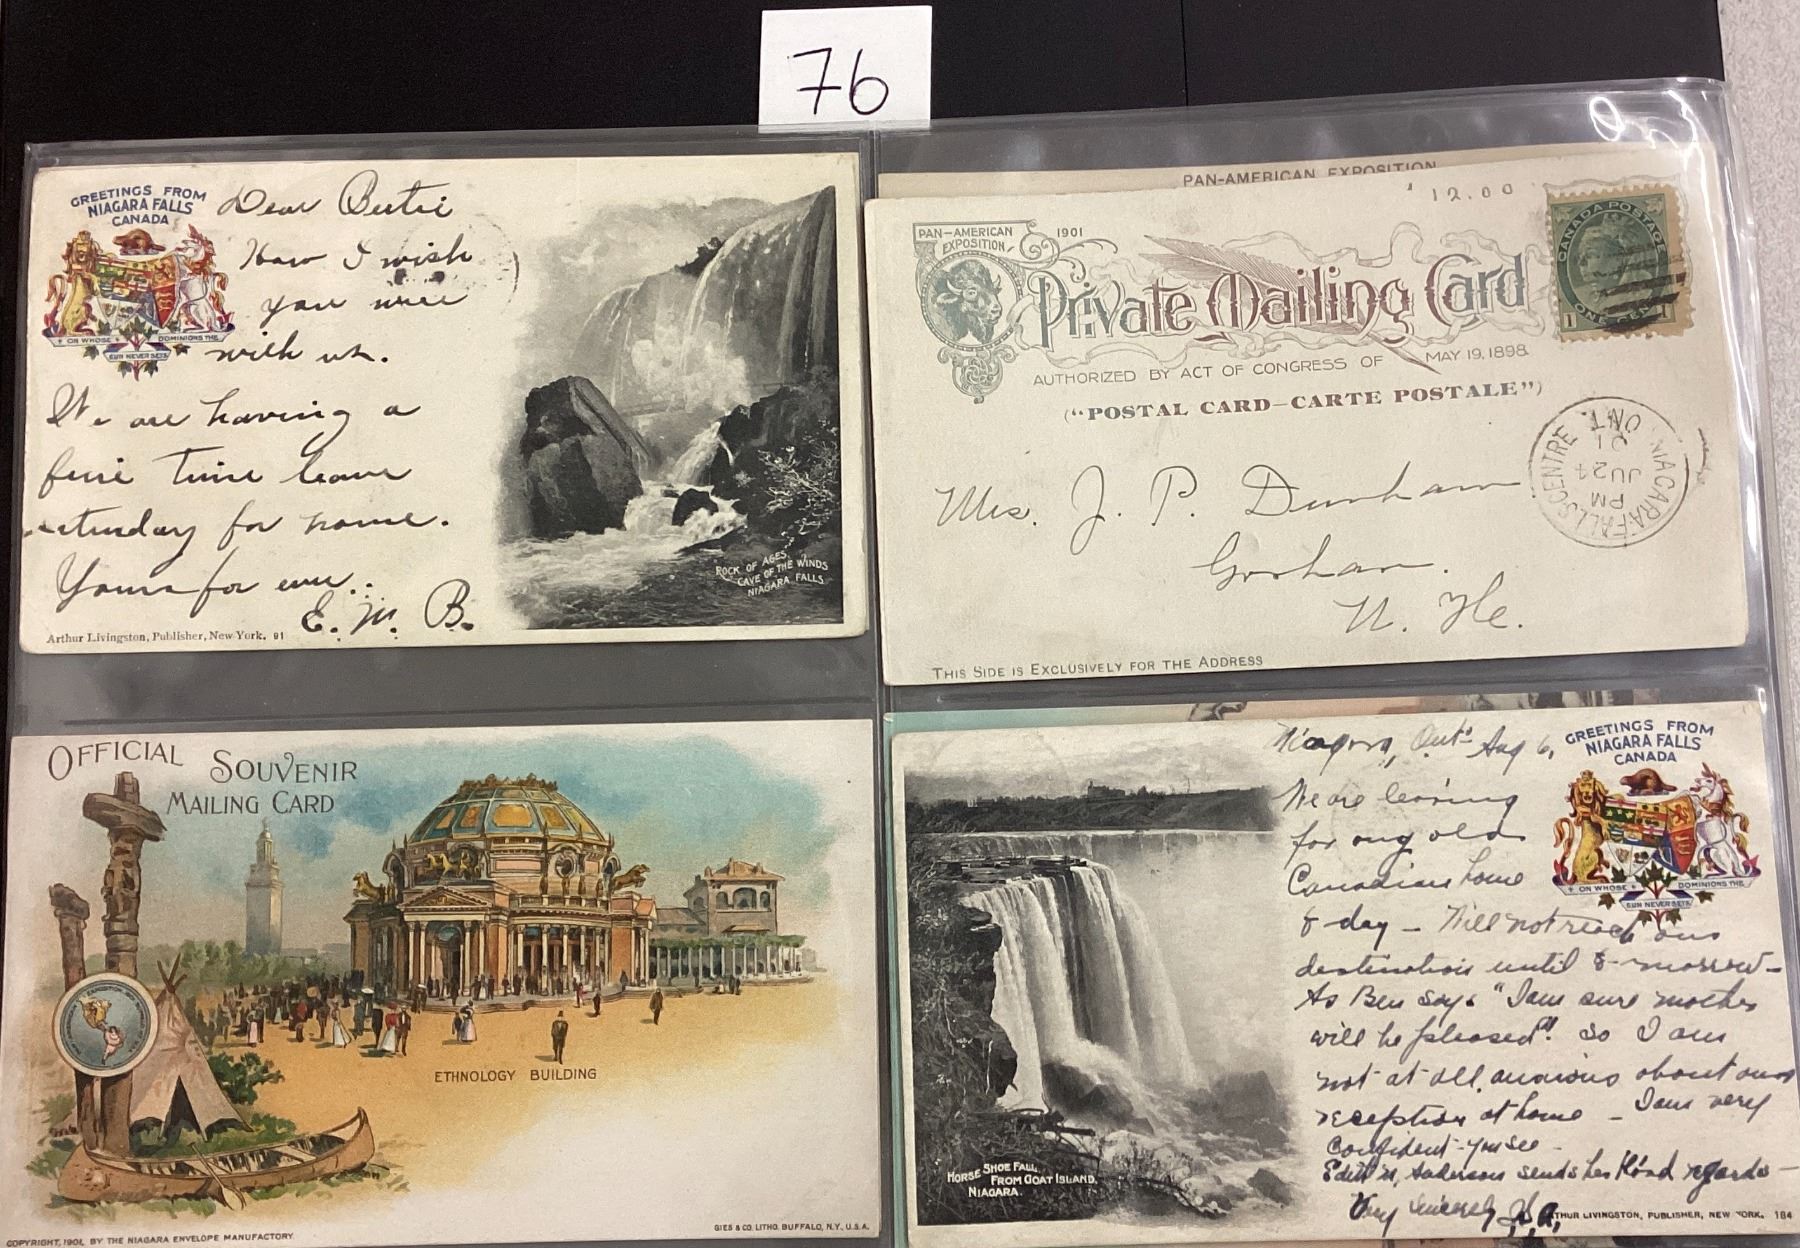 76
GREETINGS FROM
NIAGARA FALLS
CANADA
Dear Bertie
How I wish
you were
with us.
We are having a
fine time leave
Saturday for home.
Yours for ever.
E. M. B.
ON WHOSE DOMINIONS THE
SUN NEVER SETS
ROCK OF AGES.
CAVE OF THE WINDS
NIAGARA FALLS
Arthur Livingston, Publisher, New York. 91
PAN-AMERICAN EXPOSITION
12.00
PAN-AMERICAN
EXPOSITION
1901
Private Mailing Card
AUTHORIZED BY ACT OF CONGRESS OF MAY 19, 1898.
("POSTAL CARD—CARTE POSTALE")
CANADA POSTAGE
1 ONE CENT 1
NIAGARA FALLS CENTRE
PM
JU 24
01
ONT
Mrs. J. P. Dunham
Gorham.
N. He.
THIS SIDE IS EXCLUSIVELY FOR THE ADDRESS
OFFICIAL SOUVENIR
MAILING CARD
ETHNOLOGY BUILDING
COPYRIGHT, 1901, BY THE NIAGARA ENVELOPE MANUFACTORY
GIES & CO. LITHO. BUFFALO, N.Y., U.S.A.
Niagara, Ont. Aug 6,
We are leaving
for my old
Canadian home
to-day – Will not reach our
destination until to-morrow–
As Ben says "I am sure mother
will be pleased". So I am
not at all anxious about our
reception at home – I am very
confident – you see –
Edith N. Anderson sends her kind regards –
Very sincerely J. A.
GREETINGS FROM
NIAGARA FALLS
CANADA
ON WHOSE DOMINIONS THE
SUN NEVER SETS
HORSE SHOE FALL,
FROM GOAT ISLAND,
NIAGARA.
THUR LIVINGSTON, PUBLISHER, NEW YORK. 184